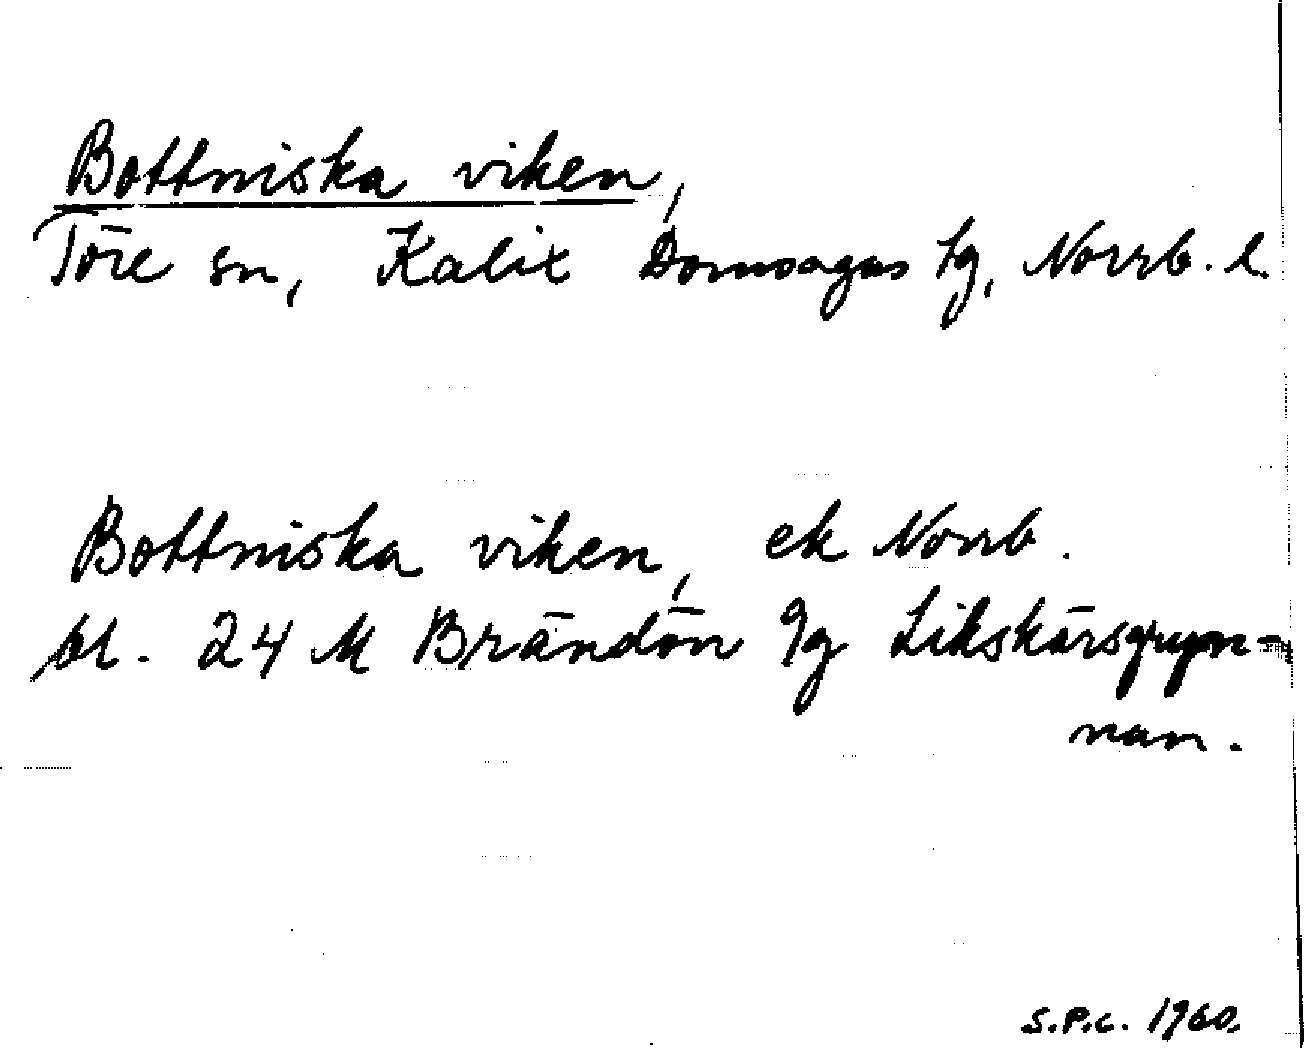 Bottniska viken,
Töre sn, Kalix Domsagas tg, Norrb. l.
Bottniska viken, ek Norrb.
bl. 24 M Brändön 9g Likskärsgrynn-
nan.
S.P.C. 1960.